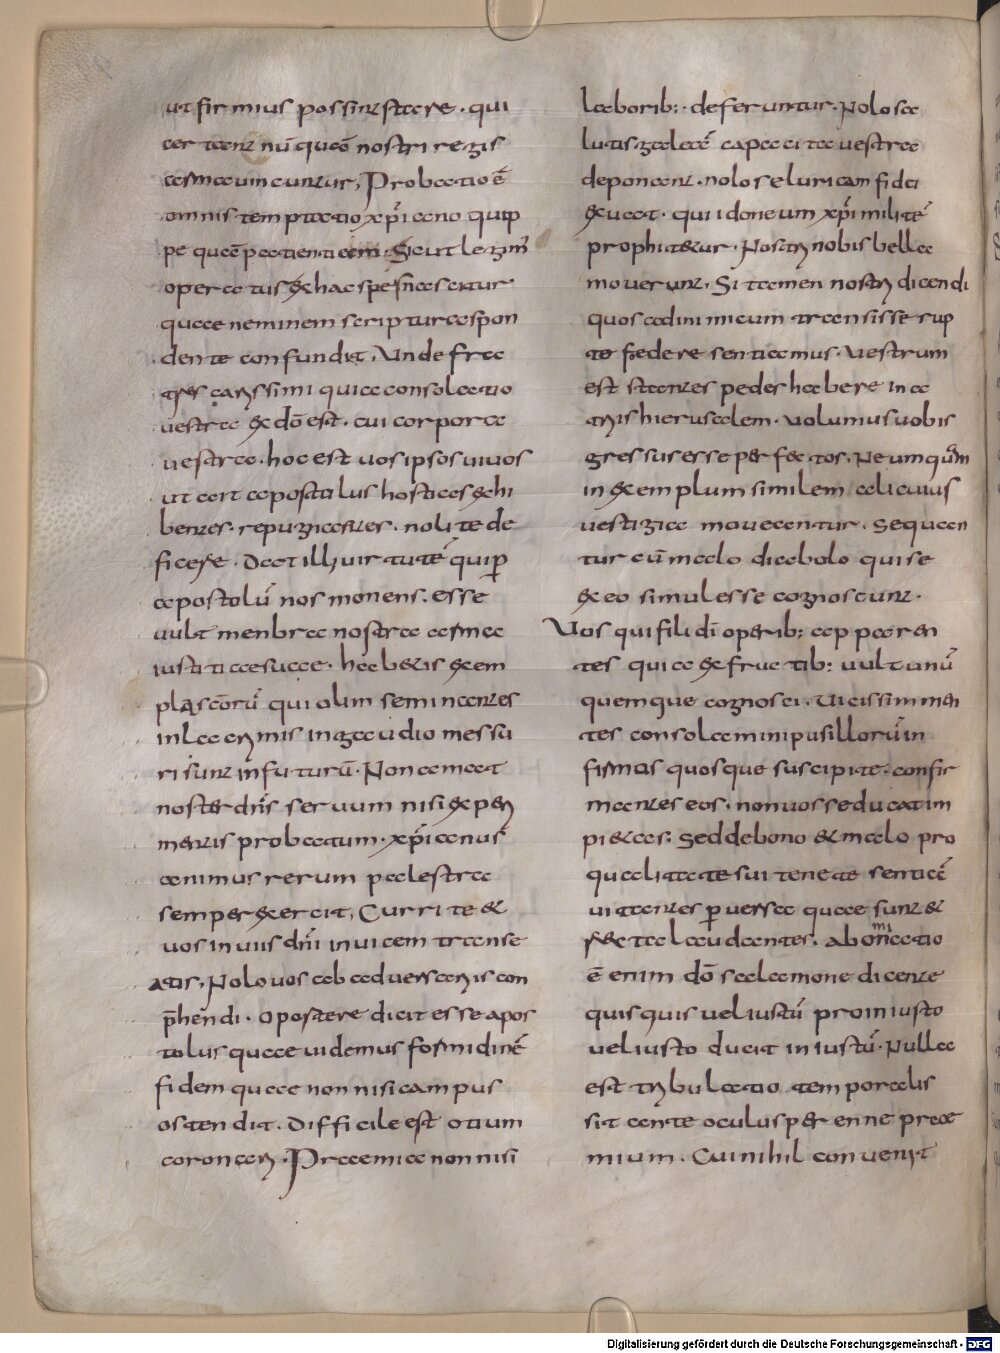 ut firmius possint stare. qui
certant nū quā nostri regis
arma uincuntur, Probatio ē
omnis temptatio xp̄iano quip
pe quē patientiam. Sicut legim̄
operatus & hac spes nascitur
quae neminem scriptura spon
dente confundit, Unde fra
tres carissimi quia consolatio
uestra ex dō est. cui corpora
uestra. hoc est uos ipsos uiuos
ut ert apostolus hostias exhi
bentes. repugnantes. nolite de
ficere. Dat illi uirtutē quip̄
apostolū nos monens. esse
uult menbra nostra arma
iustitiae suae. habetis exem
pla scōrū qui olim seminantes
in lacrimis in gaudio messu
ri sunt in futurū. Non amat
noster dn̄s seruum nisi experi
mentis probatum. xp̄ianus
animus rerum palestra
semper exercit, Currite et
uos in uiis dn̄i inuicem transe
atis, Nolo uos ab aduersariis con
p̄hendi. Opostere dicit esse apos
tolus quae uidemus formidinē
fidem quae non nisi campus
ostendit. Difficile est otium
coronari. Praemia non nisi
laborib: deferuntur. Nolo sa
lutis galeā capacitae uestra
deponant. nolo se luricam fidei
exuat. qui idoneum xp̄i militē
prophitetur. Nostri nobis bella
mouerunt, Si tamen nostri dicendi
quos ad inimicum transisse rup
to federe sentiamus. Uestrum
est stantes pedes habere in a
triis hierusalem. uolumus uobis
gressus esse perfectos. Ne umquā
in exemplum similem alicuius
uestigia moueantur. Sequan
tur cū malo diabolo qui se
ex eo simul esse cognoscunt.
Uos qui fili dī operib: apparen
tes quia ex fructib: uult unū
quemque cognosci. Uicissim men
tes consolamini pusillorū in
firmas quosque suscipite. confir
mantes eos. non uos seducat im
pietas: Sed de bono et malo pro
qualitate sui tenete sentā
uitantes p̄uersa quae sunt et
recta laudantes. abominatio
ē enim dō salamone dicente
quisquis uel iustū pro iniusto
uel iusto ducit iniustū. Nulla
est tribulatio temporalis
sit ante oculus perenne prae
mium. Cui nihil conuenit
Digitalisierung gefördert durch die Deutsche Forschungsgemeinschaft - DFG